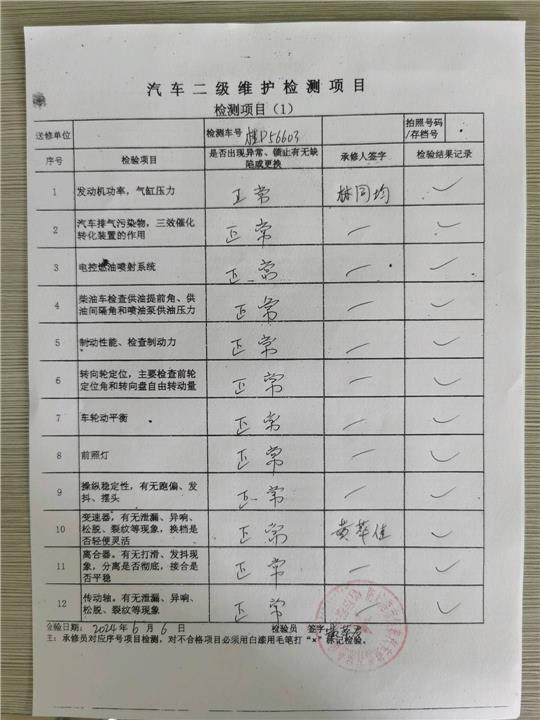 汽车二级维护检测项目
检测项目(1)
送修单位 检测车号 桂D56603 拍照号码/存档号
序号 检验项目 是否出现异常、锁止有无缺陷或更换 承修人签字 检验结果记录
1 发动机功率，气缸压力 正常 林同均 ✓
2 汽车排气污染物，三效催化转化装置的作用 正常 一 ✓
3 电控燃油喷射系统 正常 一 ✓
4 柴油车检查供油提前角、供油间隔角和喷油泵供油压力 正常 一 ✓
5 制动性能、检查制动力 正常 一 ✓
6 转向轮定位，主要检查前轮定位角和转向盘自由转动量 正常 一 ✓
7 车轮动平衡 正常 一 ✓
8 前照灯 正常 一 ✓
9 操纵稳定性，有无跑偏、发抖、摆头 正常 一 ✓
10 变速器，有无泄漏、异响、松脱、裂纹等现象，换档是否轻便灵活 正常 黄华佳 ✓
11 离合器。有无打滑、发抖现象，分离是否彻底，接合是否平稳 正常 一 ✓
12 传动轴。有无泄漏、异响、松脱、裂纹等现象 正常 一 ✓
检验日期: 2024年6月6日 检验员 签字
主: 承修员对应序号项目检测，对不合格项目必须用白漆用毛笔打“×”标记检验。